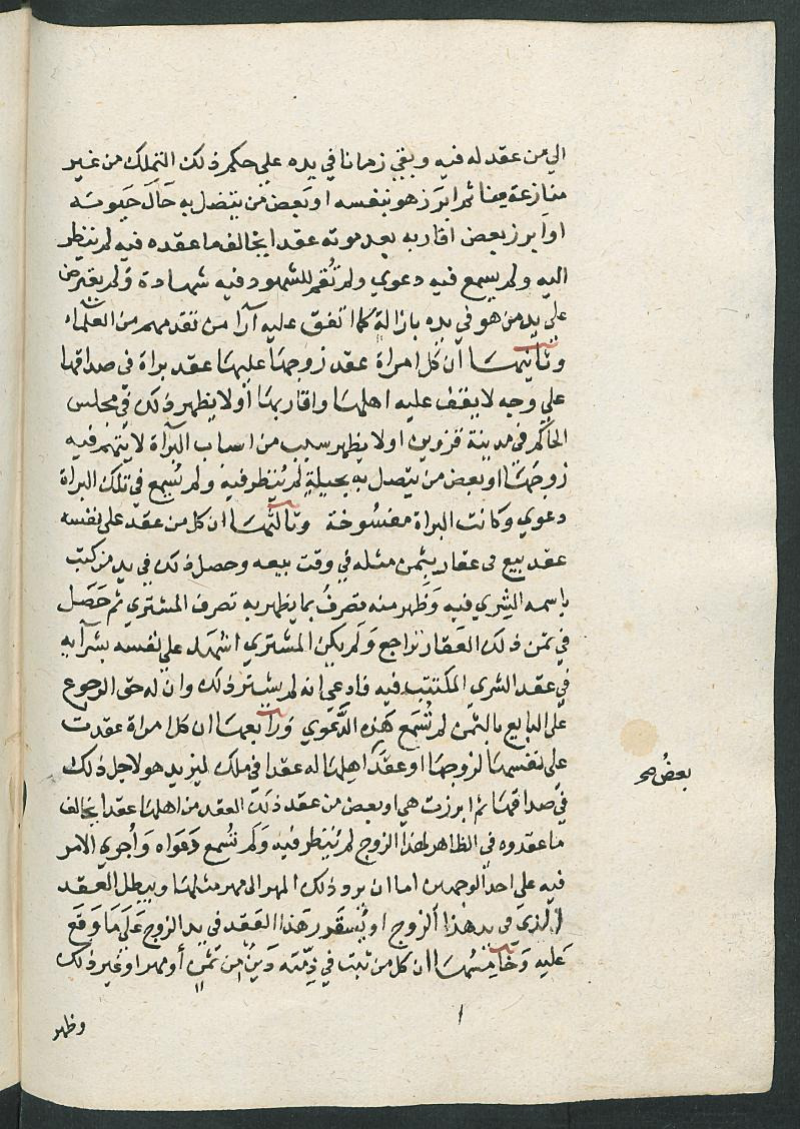 الي من عقد له فيه وبقي زمانا في يده علي حكم ذلك التملك من غير
منازعة منا ثم ابرز هو بنفسه او بعض من يتصل به حال حيوته
او ابرز بعض اقاربه بعد موته عقدا يخالف ما عقده فيه لم ينظر
اليه ولم يسمع فيه دعوي ولم تُقم للشهود فيه شهادة ولم يعترض
علي يد من هو في يده بازالة كما اتفق عليه آرا من تقدمهم من العلماء
وثانيهما ان كل امراة عقد زوجها عليها عقد براة في صداقها
علي وجه لا يقف عليه اهلها واقاربها او لا يظهر ذلك في مجلس
الحاكم في مدينة قزوين او لا يظهر سبب من اسباب البرآة لا يتهم فيه
زوجها او بعض من يتصل به بحيلةٍ لم يُنظر فيه ولم تُسمع في تلك البراة
دعوي وكانت البراة مفسُوخة وثالثها ان كل من عقد على نفسه
عقد بيع في عقار بثمن مثله في وقت بيعه وحصل ذلك في يد من كتب
باسمه الشري فيه وظهر منه تصرفُ بما يظهر به تصرف المشتري ثم حَصَل
في ثمن ذلك العَقار تراجع وَلم يكن المشتري اشهد علي نفسه بشرآيه
في عقد الشري المكتتب فيه فادعي انه لم يشتر ذلك وان له حق الرجوع
على البايع بالثمن لم تُسمَع هذه الدَّعوي ورابعها ان كل امراة عقدت
على نفسها لزوجها او عقدَ اهلها له عقدا في ملك ليزيد هو لاجل ذلك
في صداقها ثم ابرزت هي او بعض من عقد ذلك العقد من اهلها عقدا يخالف
ما عقدوه في الظاهر لهذا الزوج لم يُنظر فيه وَلم تُسمع دَعوَاه وَاُجري الامر
فيه علي احد الوجهين اما ان يرد ذلك المهر الى مهر مثلها ويبطل العقد
الذي في يد هذا الزوج او يُستقرر هَذا العَقد في يد الزوج عَلَي مَا وَقَع
عَليه وَخامِسُها ان كل من ثبت في ذمّته دَينٌ من ثمَنٍ أو مهر او غير ذلك
بعضُ صح
وظهر